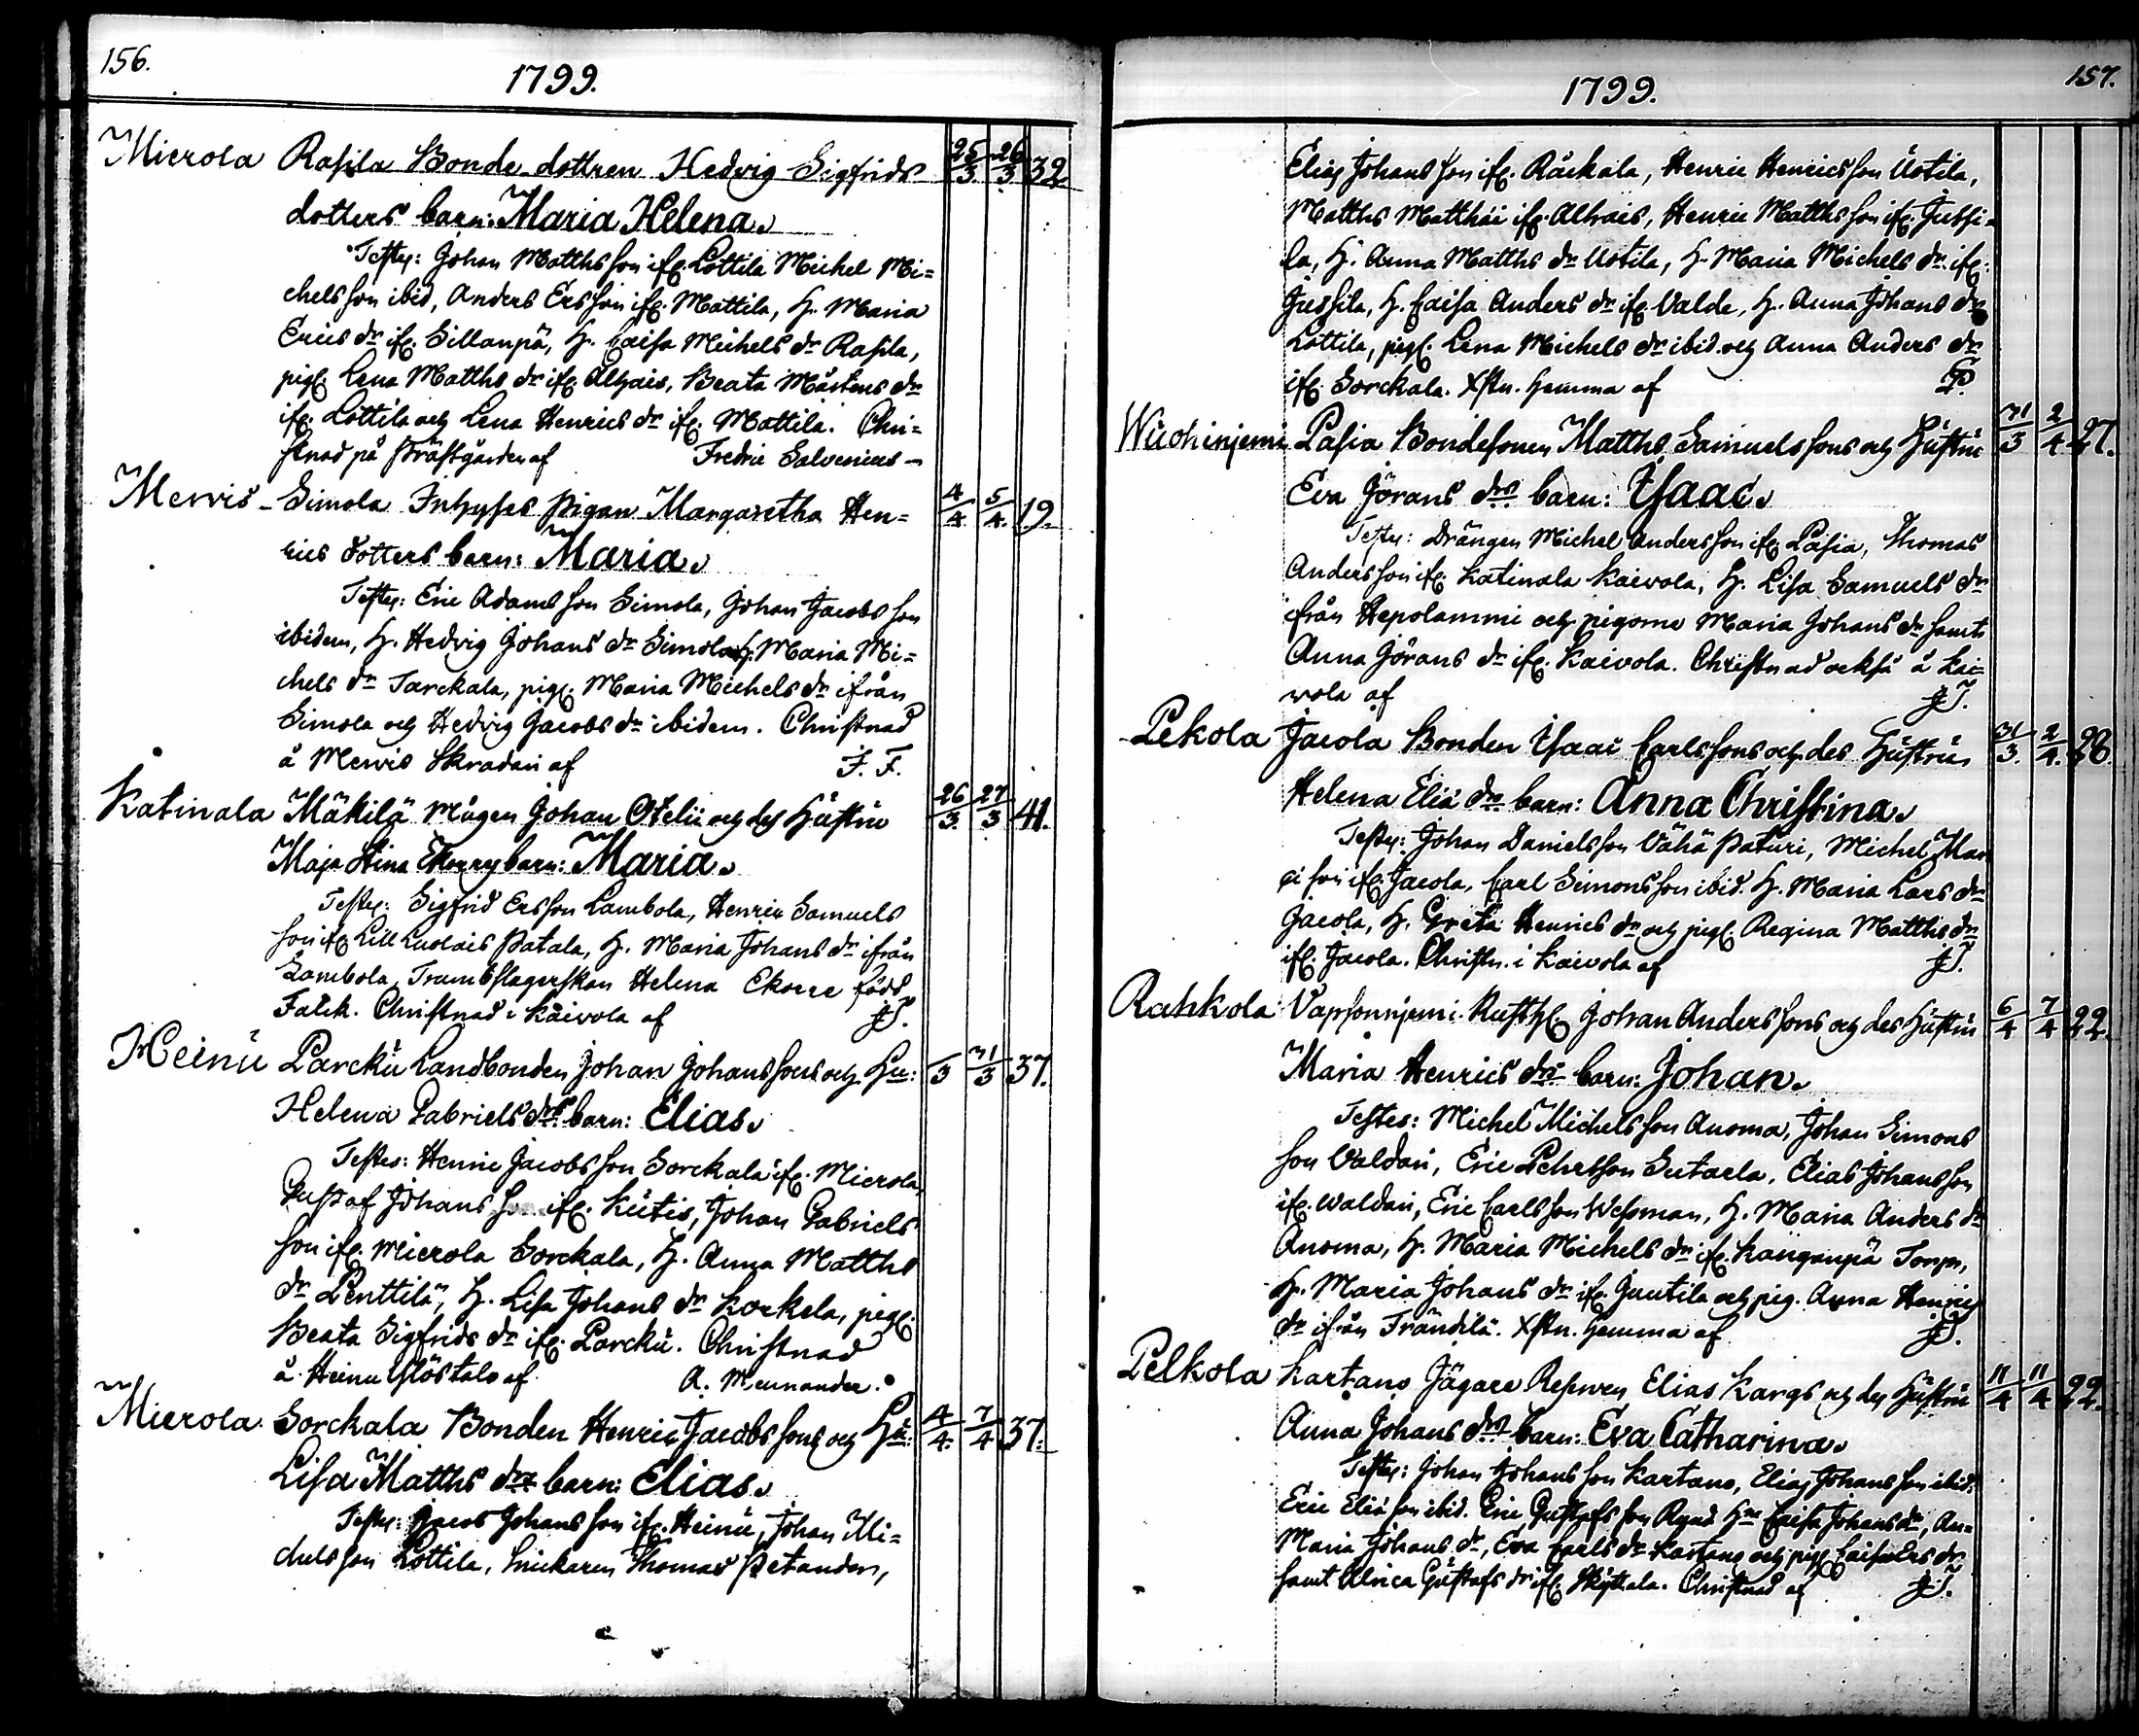 156.
1799.
Mierola Rasila Bonde dottren Hedvig Sigfrids 25/3 26/3 32
dotters barn: Maria Helena.
Testes: Johan Matthsson ifr. Lottila Michel Mi=
chelsson ibid, Anders Ersson ifr. Mattila, H. Maria
Erics dr ifr. Sillanpä, H. Caisa Michels dr Rasila,
pig. Lena Matths dr ifr. Alhais, Beata Mårtens dr
ifr. Lottila och Lena Henrics dr ifr. Mattila. Chri=
stnad på Prästgården af Fredric Salvenius
Mervis Simola Inhyses Pigan Margaretha Hen= 4/4 5/4 19.
rics dotters barn: Maria.
Testes: Eric Adamsson Simola, Johan Jacobsson
ibidem, H. Hedvig Johans dr Simola, H. Maria Mi=
chels dr Tarckala, pig. Maria Michels dr ifrån
Simola och Hedvig Jacobs dr ibidem. Christnad
å Mervis Skradari af F. F.
Katinala Mäkilä Mågen Johan Otelii och des Hustru 26/3 27/3 41.
Maja Stina barn: Maria.
Testes: Sigfrid Ersson Lambola, Henric Samuels
son ifr. Lill Luolais Patala, H. Maria Johans dr ifrån
Lambola, Trumbslagerskan Helena Ekorre född
Falck. Christnad i Kaivola af JT.
Heinu Parcku Landbonden Johan Johanssons och Hu: /3 31/3 37.
Helena Gabriels drs barn: Elias.
Testes: Henric Jacobsson Sorckala ifr. Mierola,
Gustaf Johansson ifr. Kutis, Johan Gabriels
son ifr. Mierola Sorckala, H. Anna Matths
dr Penttilä, H. Lisa Johans dr Korkela, pig.
Beata Sigfrids dr ifr. Parcku. Christnad
å Heinu Ylöstalo af A. Mennander.
Mierola Sorckala Bonden Henric Jacobssons och Hu: 4/4 7/4 37.
Lisa Matths drs barn: Elias.
Testes: Jacob Johansson ifr. Heinu, Johan Mi=
chelsson Lottila, Snickaren Thomas Petander,
157.
1799.
Elias Johansson ifr. Räikala, Henric Henricsson Ustila,
Matths Matthäi ifr. Alhais, Henric Matthsson ifr. Jussi=
la, H. Anna Matths dr Ustila, H. Maria Michels dr ifr.
Jussila, H. Caisa Anders dr ifr. Valde, H. Anna Johans dr
Lottila, pig. Lena Michels dr ibid. och Anna Anders dr
ifr. Sorckala. Xstn. hemma af
Wuohinjemi Pasia Bondesonen Matths Samuelssons och Hustru 31/3 2/4 27.
Eva Görans drs barn: Isaac.
Testes: Drängen Michel Andersson ifr. Pasia, Thomas
Andersson ifr. Katinala Kaivola, H. Lisa Samuels dr
ifrån Hepolammi och pigorne Maria Johans dr samt
Anna Görans dr ifr. Kaivola. Christnad också å Kai=
vola af JT.
Pekola Jacola Bonden Isaac Carlssons och des Hustrus 31/3 2/4 28.
Helena Eliæ drs barn: Anna Christina.
Testes: Johan Danielsson Vähä Paturi, Michel Mar
ci son ifr. Jacola, Carl Simonsson ibid. H. Maria Lars dr
Jacola, H. Greta Henrics dr och pig. Regina Matths dr
ifr. Jacola. Christn. i Kaivola af JT.
Rahkola Vapsonnjemi Rusth. Johan Anderssons och des Hustru 6/4 7/4 22.
Maria Henrics drs barn: Johan.
Testes: Michel Michelsson Anoma, Johan Simons
son Valdari, Eric Pehrsson Sutarla, Elias Johansson
ifr. Waldari, Eric Carlsson Wessman, H. Maria Anders dr
Anoma, H. Maria Michels dr ifr. Kanganpä Torp,
H. Maria Johans dr ifr. Juutila och pig. Anna Henrics
dr ifrån Frändilä. Xstn. hemma af JT.
Pelkola Kartano Jägare Elias Kargs och des Hustru 11/4 11/4 22.
Anna Johans drs barn: Eva Catharina.
Testes: Johan Johansson Kartano, Elias Johansson ibid.
Eric Eliæson ibid. Eric Gustafsson Hru Caisa Johans dr, An=
Maria Johans dr, Eva Carls dr Kartano och pig. Caisa Ers dr
samt Ulrica Gustafs dr ifr. Skyttala. Christnad af JT.